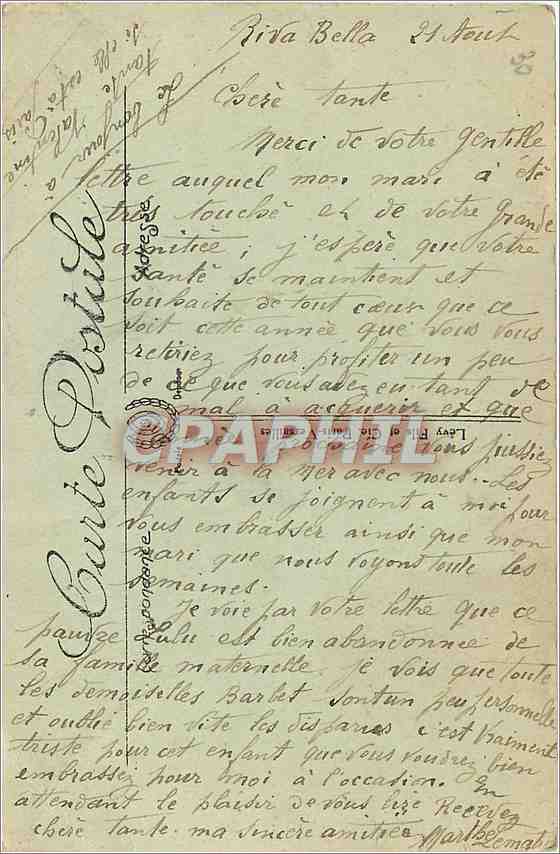 Riva Bella 21 Août
Chère tante
Merci de votre gentille
lettre auquel mon mari à été
très touché et de votre grande
amitiée, j'espère que votre
santé se maintient et
souhaite de tout cœur que ce
soit cette année que vous vous
retiriez pour profiter un peu
de ce que vous avez eu tant de
mal à acquerir et que
vous puissiez
venir à la mer avec nous. Les
enfants se joignent à moi pour
vous embrasser ainsi que mon
mari que nous voyons toute les
semaines.
Je voie par votre lettre que ce
pauvre Lulu est bien abandonnée de
sa famille maternelle. je vois que toute
les demoiselles Barbet sont un peu personnelle
et oublié bien vite les disparues c'est vraiment
triste pour cet enfant que vous voudrez bien
embrassez pour moi à l'occasion. en
attendant le plaisir de vous lire Recevez
chère tante ma sincère amitiée Marthe
Lemat
Le bonjour à
tante Valentine
si elle est à Paris
Carte Postale
Correspondance
Adresse
Lévy Fils et Cie, Paris-Versailles
©PAPHIL